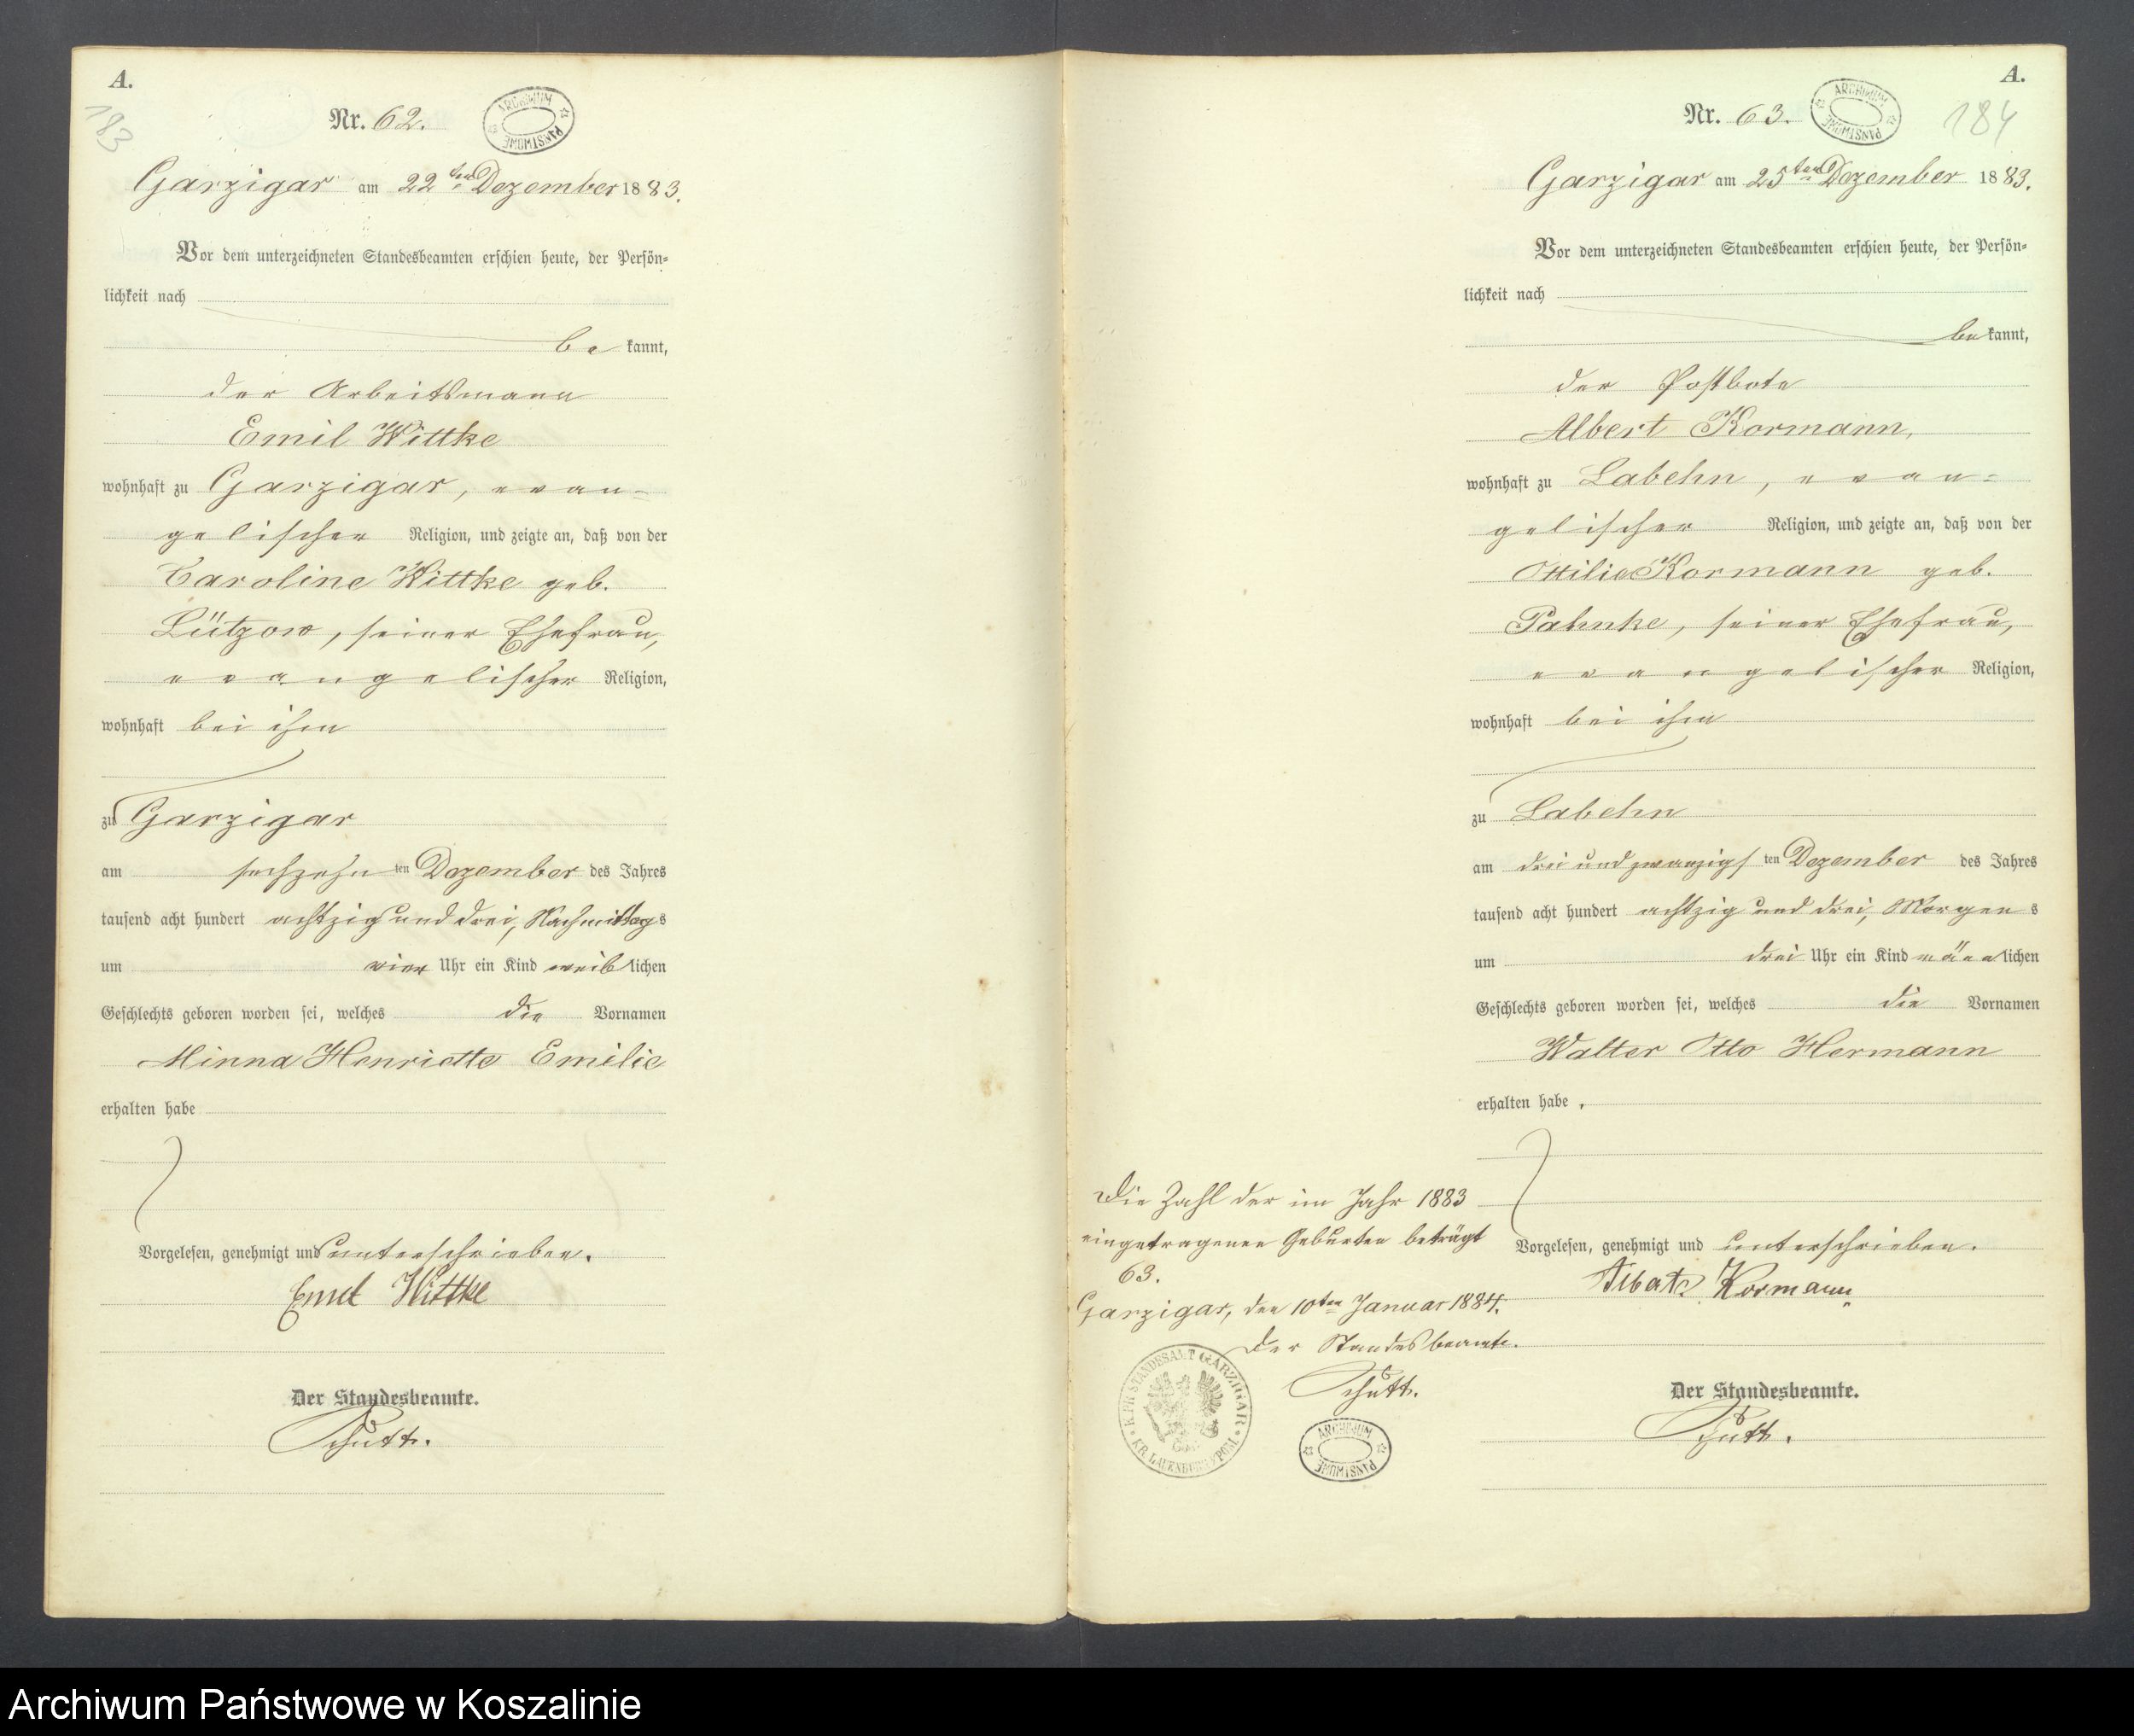 A.
183
Nr. 62.
ARCHIWUM PAŃSTWOWE
Garzigar am 22ten Dezember 1883.
Vor dem unterzeichneten Standesbeamten erschien heute, der Persön-
lichkeit nach
be kannt,
der Arbeitsmann
Emil Wittke
wohnhaft zu Garzigar, evan-
gelischer Religion, und zeigte an, daß von der
Caroline Wittke geb.
Lützow, seiner Ehefrau,
evangelischer Religion,
wohnhaft bei ihm
zu Garzigar
am sechzehn ten Dezember des Jahres
tausend acht hundert achtzig und drei, Nachmittags
um vier Uhr ein Kind weiblichen
Geschlechts geboren worden sei, welches die Vornamen
Minna Henriette Emilie
erhalten habe
Vorgelesen, genehmigt und unterschrieben.
Emil Wittke
Der Standesbeamte.
Schütt.
A.
184
Nr. 63.
ARCHIWUM PAŃSTWOWE
Garzigar am 25ten Dezember 1883.
Vor dem unterzeichneten Standesbeamten erschien heute, der Persön-
lichkeit nach
be kannt,
der Postbote
Albert Kormann,
wohnhaft zu Labehn, evan-
gelischer Religion, und zeigte an, daß von der
Ottilie Kormann geb.
Pahnke, seiner Ehefrau,
evangelischer Religion,
wohnhaft bei ihm
zu Labehn
am drei und zwanzigsten Dezember des Jahres
tausend acht hundert achtzig und drei, Morgens
um drei Uhr ein Kind männlichen
Geschlechts geboren worden sei, welches die Vornamen
Walter Otto Hermann
erhalten habe.
Vorgelesen, genehmigt und unterschrieben.
Albert Kormann
Der Standesbeamte.
Schütt.
Die Zahl der im Jahr 1883
eingetragenen Geburten beträgt
63.
Garzigar, den 10ten Januar 1884.
Der Standesbeamte.
Schütt.
K. PR. STANDESAMT GARZIGAR * KR. LAUENBURG I/POM.
ARCHIWUM PAŃSTWOWE
Archiwum Państwowe w Koszalinie